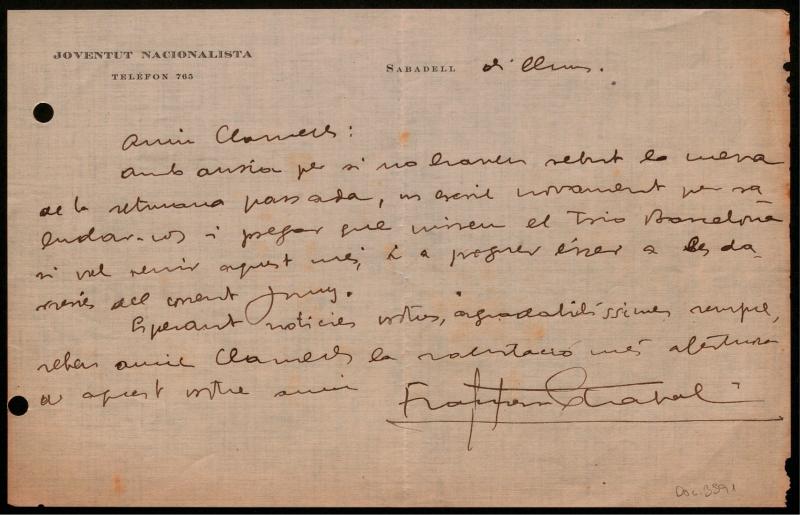 JOVENTUT NACIONALISTA
TELÈFON 765
SABADELL dilluns.
Amic Clarnells:
Amb ansia per si no haveu rebut la meva
de la setmana passada, us escric novament per sa
ludar-vos i pregar que mireu el Trio Barcelona
si vol venir aquest mes, i a poguer ésser a les da
rreries del corrent Juny.
Esperant noticies vostres, agradabilíssimes sempre,
rebeu amic la salutació més afectuosa
d'aquest vostre amic Francesc Trabal
Doc. 3391